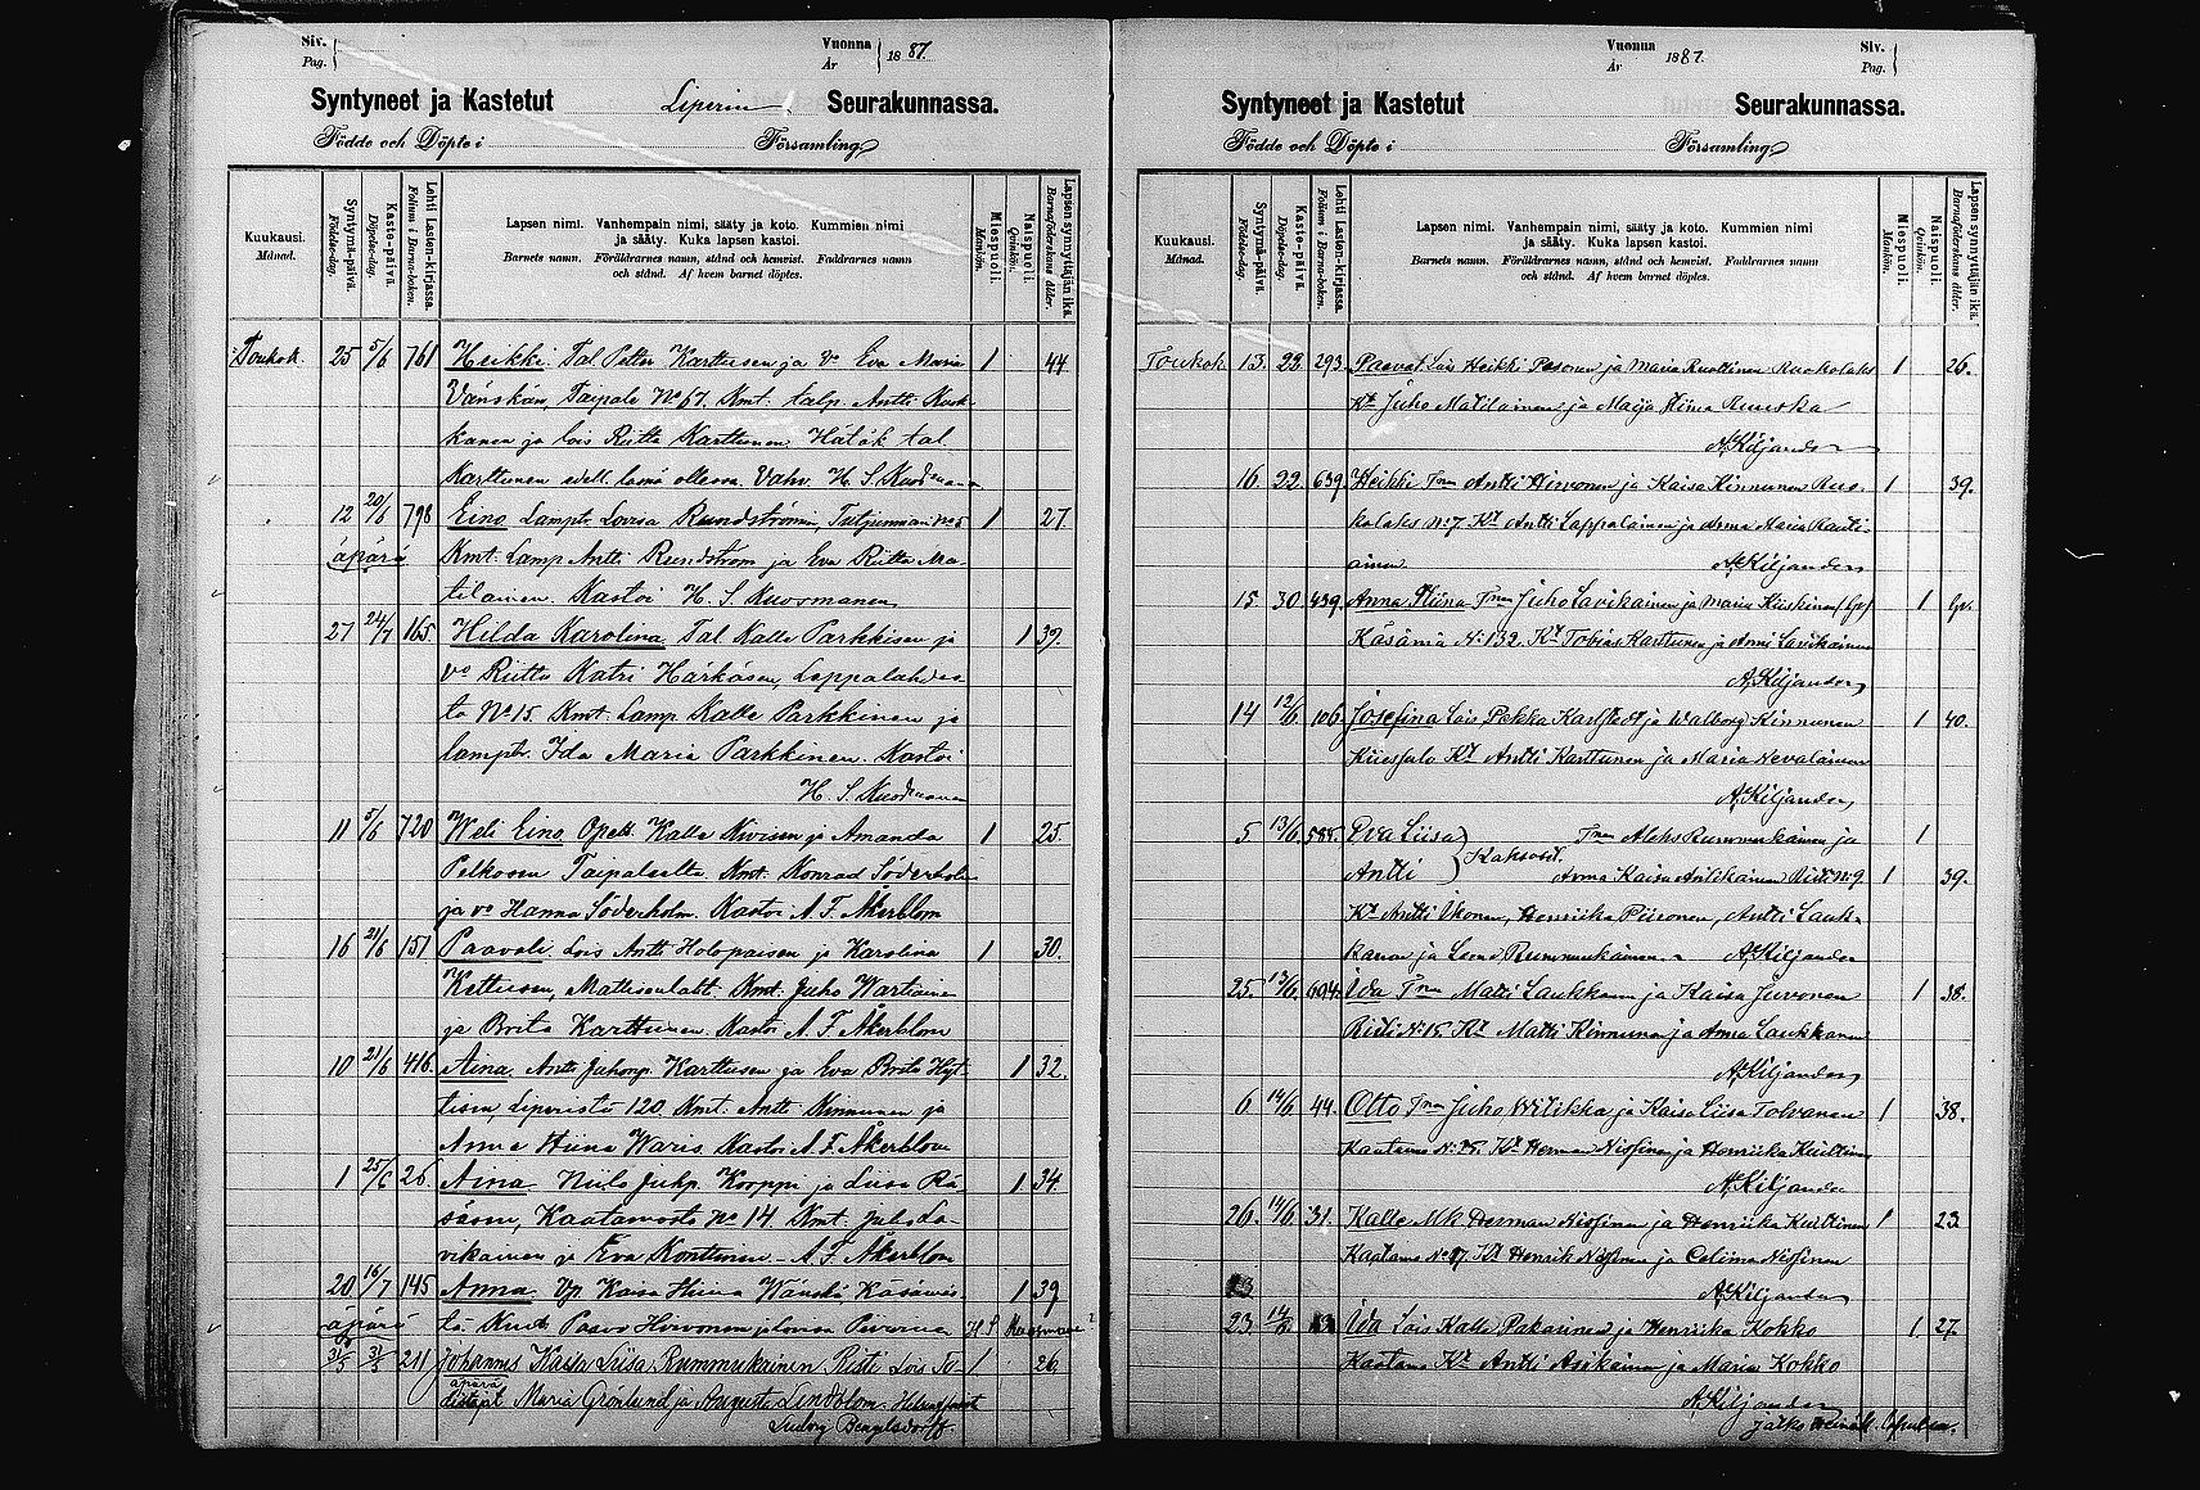 Siv.
Pag.
Vuonna
År
1887.
Syntyneet ja Kastetut Liperin Seurakunnassa.
Födde och Döpte i Församling
Kuukausi.
Månad.
Syntymä-päivä.
Födelse-dag.
Kaste-päivä.
Döpelse-dag.
Lehti Lasten-kirjassa.
Folium i Barna-boken.
Lapsen nimi. Vanhempain nimi, sääty ja koto. Kummien nimi
ja sääty. Kuka lapsen kastoi.
Barnets namn. Föräldrarnes namn, stånd och hemvist. Faddrarnes namn
och stånd. Af hvem barnet döptes.
Miespuoli.
Mankön.
Naispuoli.
Qvinkön.
Lapsen synnyttäjän ikä.
Barnaföderskans ålder.
Toukok. 25 5/6 761 Heikki. Tal. Petter Karttusen ja vo Eva Maria 1 44
Vänskän, Taipale No 67. Kmt: talp. Antti Kuok-
kanen ja lois Riitta Karttunen. Hätäk tal.
Karttunen edell. läsnä ollessa. Vahv. H. S. Kuosmanen
12 20/6 798 Eino Lamptr. Lovisa Rundströmin, Tutjunniemi No 5 1 27.
äpärä Kmt: Lamp Antti Rundström ja Eva Riitta Ma-
tilainen. Kastoi H. S. Kuosmanen
27 24/7 165. Hilda Karolina. Tal. Kalle Parkkisen ja 1 39.
vo Riitta Katri Härkäsen, Leppälahdes-
ta No 15. Kmt. Lamp. Kalle Parkkinen ja
lamptr. Ida Maria Parkkinen. Kastoi
H. S. Kuosmanen
11 5/6 720 Weli Eino. Opett. Kalle Kivisen ja Amanda 1 25.
Pelkosen Taipaleelta. Kmt. Konrad Söderholm
ja vo Hanna Söderholm. Kastoi A. F. Åkerblom
16 21/6 151. Paavali. Lois Antti Holopaisen ja Karolina 1 30.
Kettusen, Mattisenlaht. Kmt. Juho Wartiainen
ja Brita Karttunen. Kastoi A. F. Åkerblom
10 21/6 416. Aina. Antti Juhonp. Karttusen ja Eva Brita Hyt- 1 32.
tisen, Liperistä 120. Kmt. Antti Kinnunen ja
Anna Stiina Waris. Kastoi A. F. Åkerblom
1 25/6 26. Aina Niilo Juhp. Korppi ja Liisa Rä- 1 34.
säsen, Kaatamosta No 14. Kmt. Juho La-
vikainen ja Eva Konttinen. - A. F. Åkerblom
20 16/7 145 Anna. Kaisa Wänskä, Käsämäs- 1 39
äpärä tä. Kmt. Paavo Hirvonen ja Lovisa H S Kuosmanen
31/5 31/5 211 Johannes Kaisa Liisa Rummukainen Risti Lois To- 1 26.
äpärä
distajat Maria Grönlund ja Augusta Lindblom. Helsingfors
Ludvig Bengelsdorff.
Vuonna
År
1887.
Siv.
Pag.
Syntyneet ja Kastetut Seurakunnassa.
Födde och Döpte i Församling
Kuukausi.
Månad.
Syntymä-päivä.
Födelse-dag.
Kaste-päivä.
Döpelse-dag.
Lehti Lasten-kirjassa.
Folium i Barna-boken.
Lapsen nimi. Vanhempain nimi, sääty ja koto. Kummien nimi
ja sääty. Kuka lapsen kastoi.
Barnets namn. Föräldrarnes namn, stånd och hemvist. Faddrarnes namn
och stånd. Af hvem barnet döptes.
Miespuoli.
Mankön.
Naispuoli.
Qvinkön.
Lapsen synnyttäjän ikä.
Barnaföderskans ålder.
Toukok 13. 22. 293. Paavo. Lois Heikki Pesonen ja Maria Ruottinen Ruokolaks 1 26.
Kt Juho Matilainen ja Maija Stiina Ruuska
A. Kiljander
16. 22. 639. Heikki Tmn Antti Hirvonen ja Kaisa Kinnunen Ruo- 1 39.
kolaks No 7 Kt Antti Lappalainen ja Anna Maria Rauti-
ainen. A. Kiljander
15. 30. 439. Anna Stiina Tmn Juho Lavikainen ja Maria Kiiskinen 1
Käsämä No 132. Kt Tobias Karttunen ja Anni Lavikainen
A. Kiljander
14 12/6. 106. Josefina Lois Pekka Karlstedt ja Walborg Kinnunen 1 40.
Kt Antti Karttunen ja Maria Nevalainen
A. Kiljander
5. 13/6. 585. Eva Liisa Tmn Aleks Rummukainen ja 1
Kaksoset.
Antti Anna Kaisa Asikainen Risti No 9. 1 39.
Kt Antti Ikonen, Henriika Piironen, Antti Lauk-
kanen ja Leena Rummukainen. A. Kiljander
25. 13/6. 604. Ida Tmn Matti Laukkanen ja Kaisa Juvonen 1 38.
Risti No 15. Kt Matti Kinnunen ja Anna Laukkanen
A. Kiljander
6 14/6 44. Otto Tmn Juho Wilikka ja Kaisa Liisa Tolvanen 1 38.
Kaatamo No 15. Kt Herman Nissinen ja Henriika Kuittinen
A. Kiljander
26. 14/6 31. Kalle Mk Herman Nissinen ja Henriika Kuittinen 1 23.
Kaatamo No 17. Kt Henrik Nissinen ja Celiina Nissinen
A. Kiljander
23. 14/6 Ida Lois Kalle Pakarinen ja Henriika Kokko 1 27.
Kaatamo Kt Antti Asikainen ja Maria Kokko
A. Kiljander
Jatko Heinäk. lopussa.